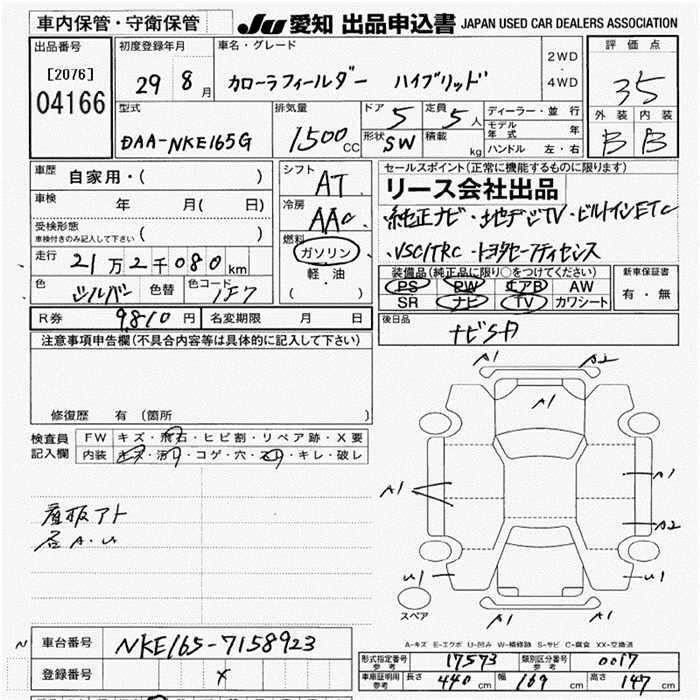 車内保管・守衛保管
JU 愛知 出品申込書 JAPAN USED CAR DEALERS ASSOCIATION
出品番号 [2076] 04166
初度登録年月 29 8月
車名・グレード カローラフィールダー ハイブリッド
2WD・4WD
評価点 35
外装 内装
B B
型式 DAA-NKE165G
排気量 1500cc
ドア 5
形状 SW
定員 5人
積載 kg
ディーラー・並行
モデル年式 年
ハンドル 左・右
車歴 自家用・( )
車検 年 月( 日)
受検形態
車検付きのみ記入して下さい ( )
走行 21万2千080km
色 シルバー 色替 色コード 1F7
シフト AT
冷房 AAC
燃料 ガソリン
軽・油
( )
セールスポイント(正常に機能するものに限ります)
リース会社出品
・純正ナビ・地デジTV・ビルトインETC
・VSC/TRC・トヨタセーフティセンス
装備品(純正品に限り○をつけてください)
PS PW エアB AW
SR ナビ TV カワシート
新車保証書
有・無
R券 9810円 名変期限 月 日
後日品 ナビSD
注意事項申告欄(不具合内容等は具体的に記入して下さい)
修復歴 有(箇所 )
検査員記入欄
FW キズ・飛石・ヒビ割・リペア跡・X要
内装 キズ・汚れ・コゲ・穴・スレ・キレ・破レ
看板アト
A1 A2
A1
A1 A1
A2
U1 U1
A1 A1
スペア
A-キズ E-エクボ U-凹み W-補修跡 S-サビ C-腐食 XX-交換済
車台番号 NKE165-7158923
登録番号 X
形式指定番号 参考 17573 類別区分番号 参考 0017
車車証明用 参考 長さ 440cm 幅 169cm 高さ 147cm